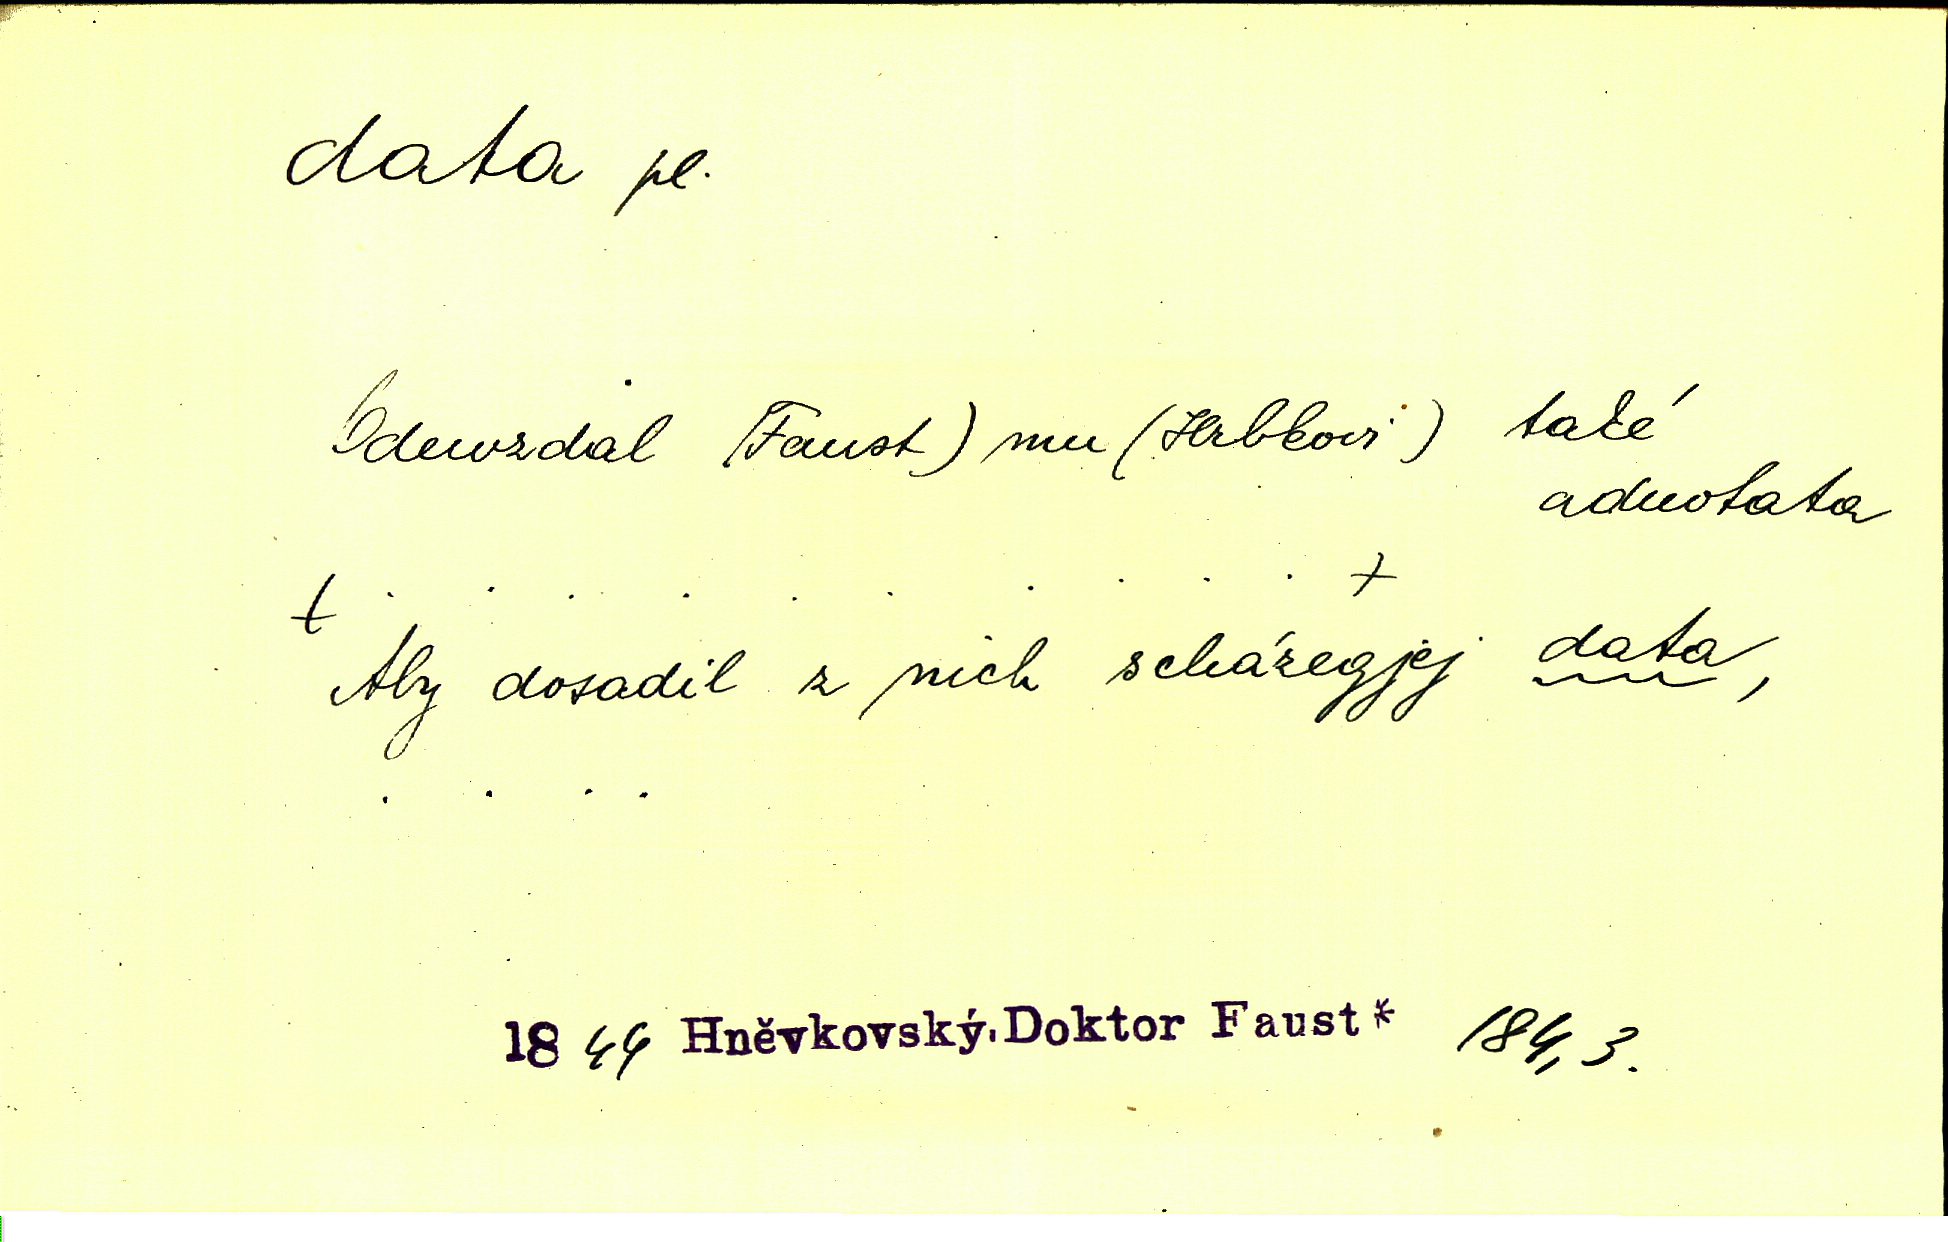 data pl.
Odewzdal (Faust) mu (Hrbkovi) také
adnotata
+ . . . . . . . . . . +
Aby dosadil z nich scházegjcj data,
. . . .
1844 Hněvkovský, Doktor Faust* 184, 3.